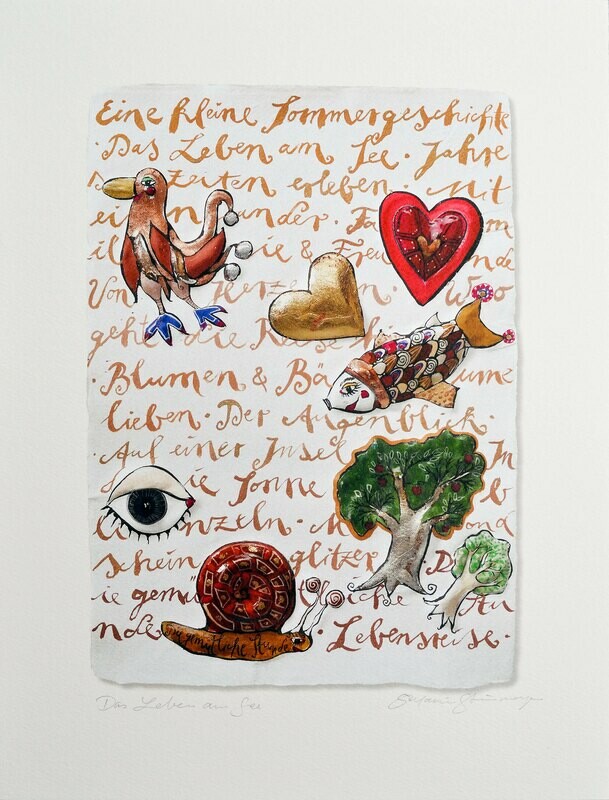 Eine kleine Sommergeschichte
· Das Leben am See · Jahre
szeiten erleben · Mit
einander · Fa m
il ie & Freunde
Von Herzen · Wo
geht die Reise hin
· Blumen & Bäume
lieben · Der Augenblick ·
Auf einer Insel In
ie Sonne b
nzeln · M ond
schein glitzer · D
ie gemütliche Stu
nde · Lebensreise ·
die gemütliche Stunde
Das Leben am See